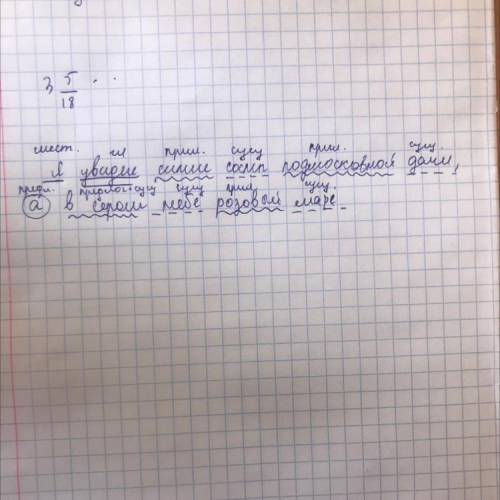 3 5/18 . .
мест. гл прил. сущ прил. сущ.
Я увидел синие сосны подмосковной дачи,
предл. сущ сущ прил. сущ.
а в сером небе розовой